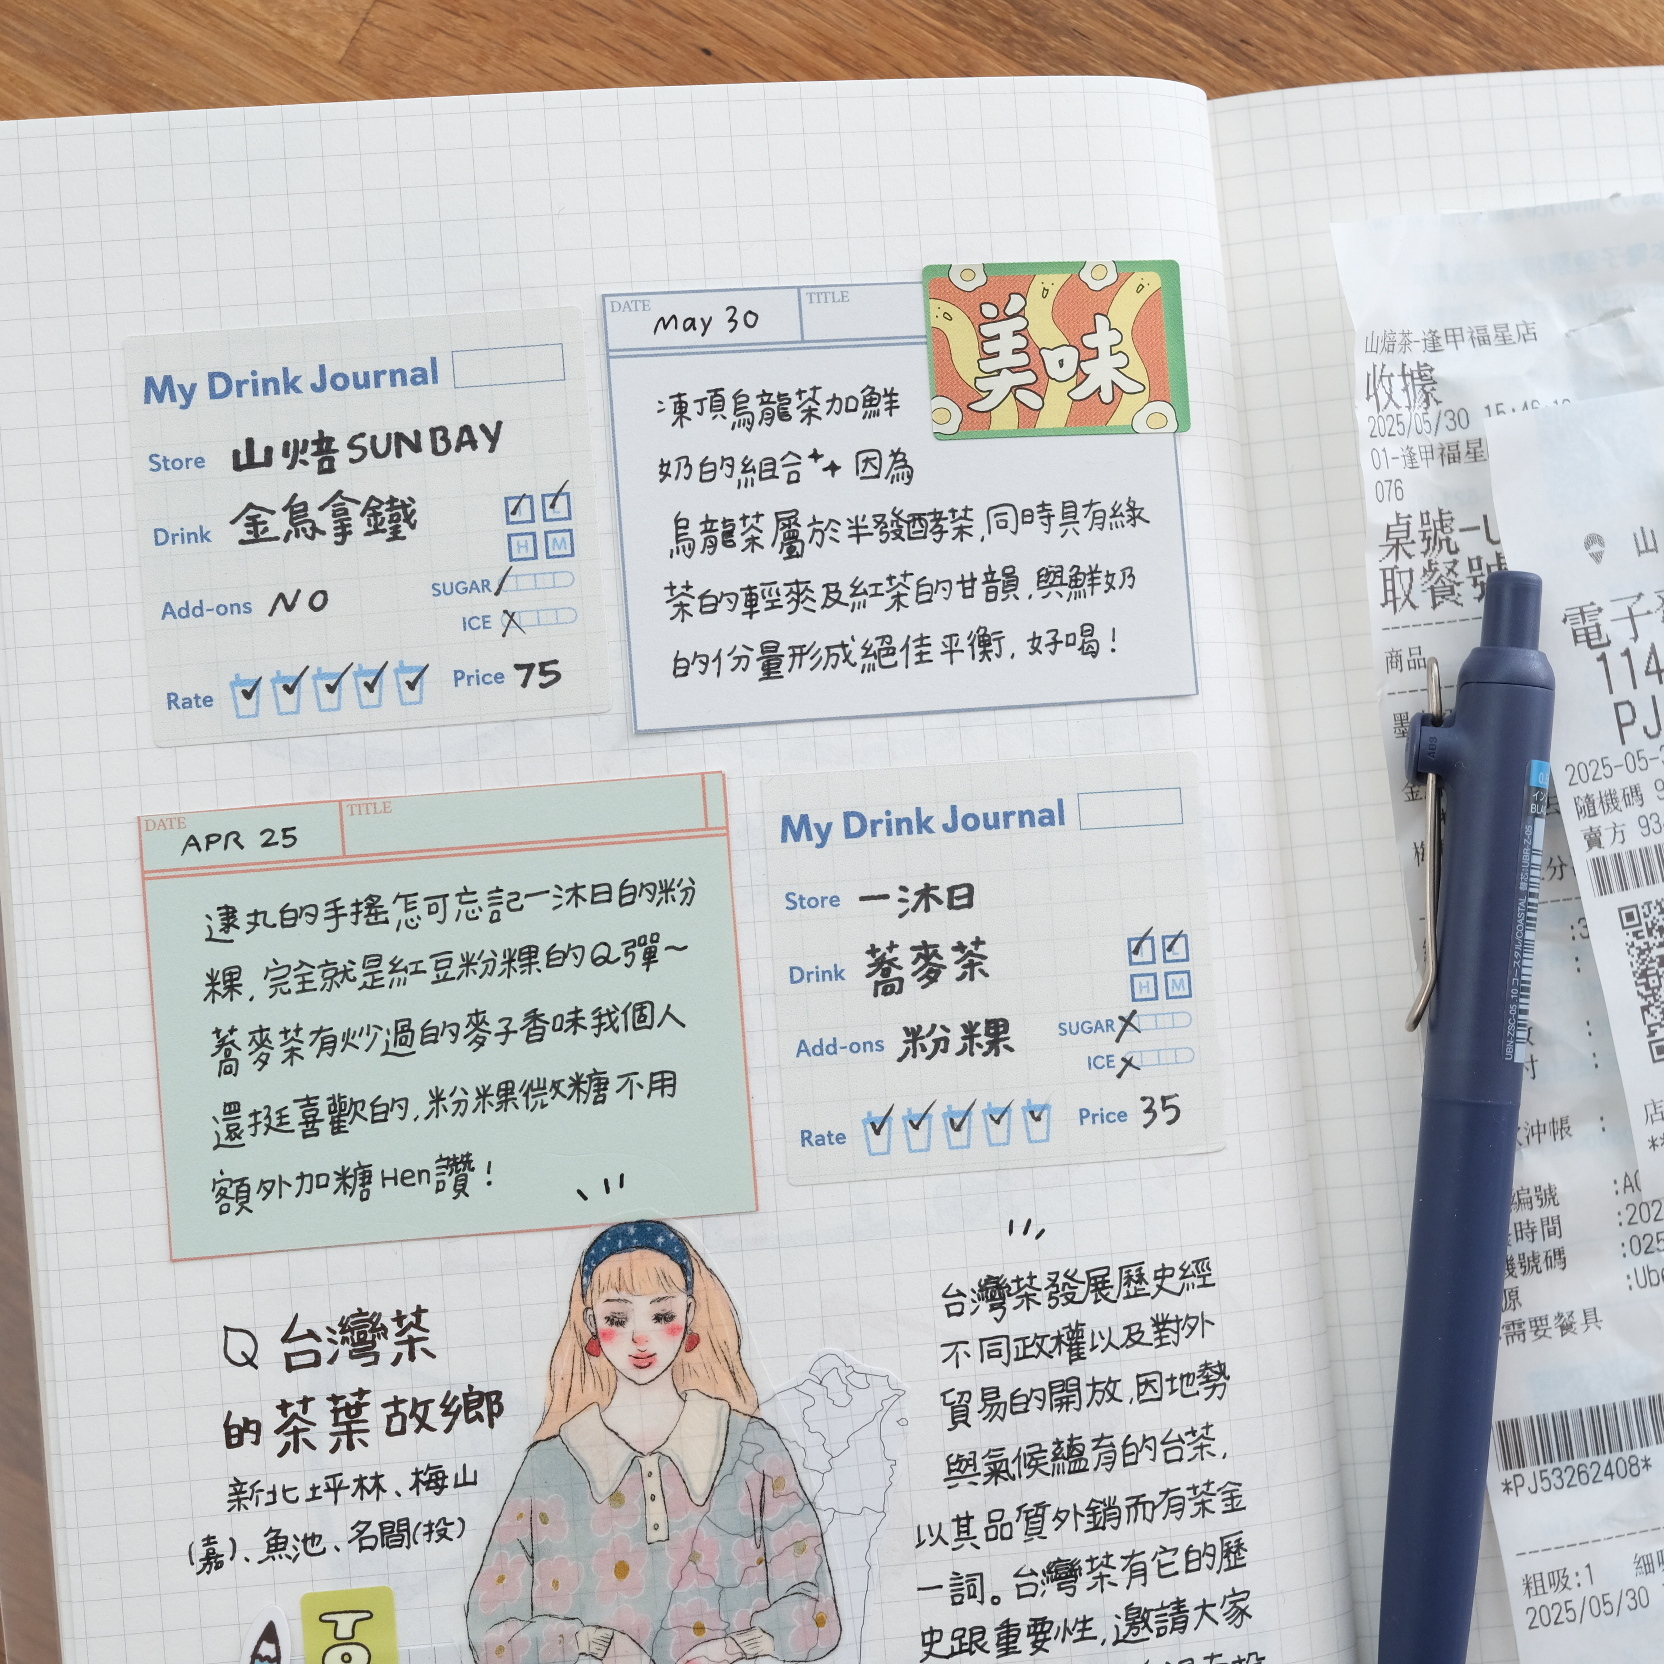 My Drink Journal
Store 山焙 SUNBAY
Drink 金烏拿鐵
H M
Add-ons NO
SUGAR
ICE
Rate
Price 75
DATE May 30
TITLE
美味
凍頂烏龍茶加鮮
奶的組合 因為
烏龍茶屬於半發酵茶,同時具有綠
茶的輕爽及紅茶的甘韻,與鮮奶
的份量形成絕佳平衡,好喝!
DATE APR 25
TITLE
逮丸的手搖怎可忘記一沐日的粉
粿,完全就是紅豆粉粿的Q彈~
蕎麥茶有炒過的麥子香味我個人
還挺喜歡的,粉粿微糖不用
額外加糖Hen讚!
My Drink Journal
Store 一沐日
Drink 蕎麥茶
L
H M
Add-ons 粉粿
SUGAR
ICE
Rate
Price 35
Q 台灣茶
的茶葉故鄉
新北坪林、梅山
(嘉)、魚池、名間(投)
TO
台灣茶發展歷史經
不同政權以及對外
貿易的開放,因地勢
與氣候蘊育的台茶,
以其品質外銷而有茶金
一詞。台灣茶有它的歷
史跟重要性,邀請大家
山焙茶-逢甲福星店
收據
2025/05/30 15:49
01-逢甲福星
076
桌號-U
取餐號
商品
山
電子
114
PJ
2025-05-3
隨機碼 9
賣方 93
沖帳 :
編號
時間 :202
號碼 :025
源 :Ube
需要餐具
*PJ53262408*
粗吸:1
2025/05/30